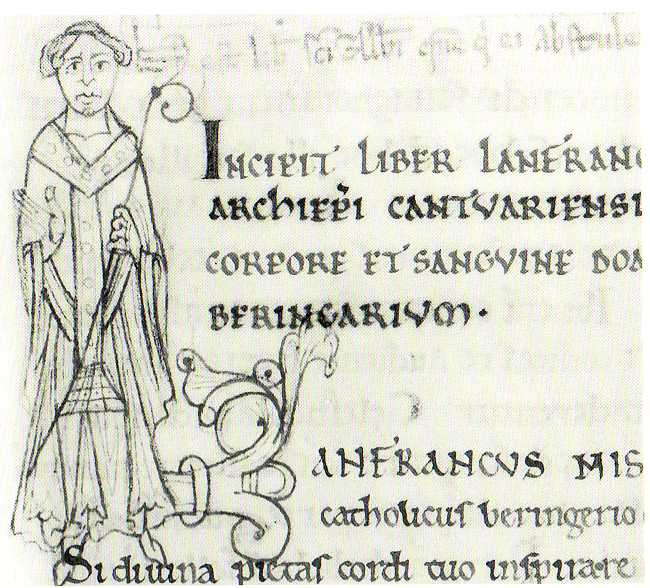 INCIPIT LIBER LANFRANC
ARCHIEP̄I CANTVARIENSI
CORPORE ET SANGVINE DOM
BERINGARIVM·
LANFRANCVS MIS
catholicus beringerio
Si diuina pietas cordi tuo inspirare